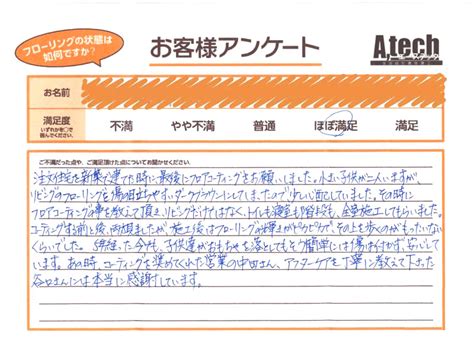 フローリングの状態は
如何ですか?
お客様アンケート
A.tech
お名前
満足度
いずれかを〇で
囲んでください。
不満
やや不満
普通
ほぼ満足
満足
ご不満だった点や、ご満足頂けた点についてお聞かせください。
注文住宅を新築で建てた時に、最後にフロアコーティングをお願いしました。小さい子供が二人いますが、
リビングのフローリングを傷の目立ちやすいダークブラウンにしてしまったので少しづつ心配していました。その時に
フロアコーティングの事を教えて頂き、リビングだけではなく、トイレも寝室も階段も、全部施工してもらいました。
コーティングする前と後、両方見ましたが、施工後はフローリングの輝きがピカピカで、その上を歩くのがもったいない
くらいでした。5年経った今でも、子供達がおもちゃを落としてもそう簡単には傷は付かず、安心して
います。あの時、コーティングを奨めてくれた営業の中田さん、アフターケアを丁寧に教えて下さった
谷口さんには本当に感謝しています。